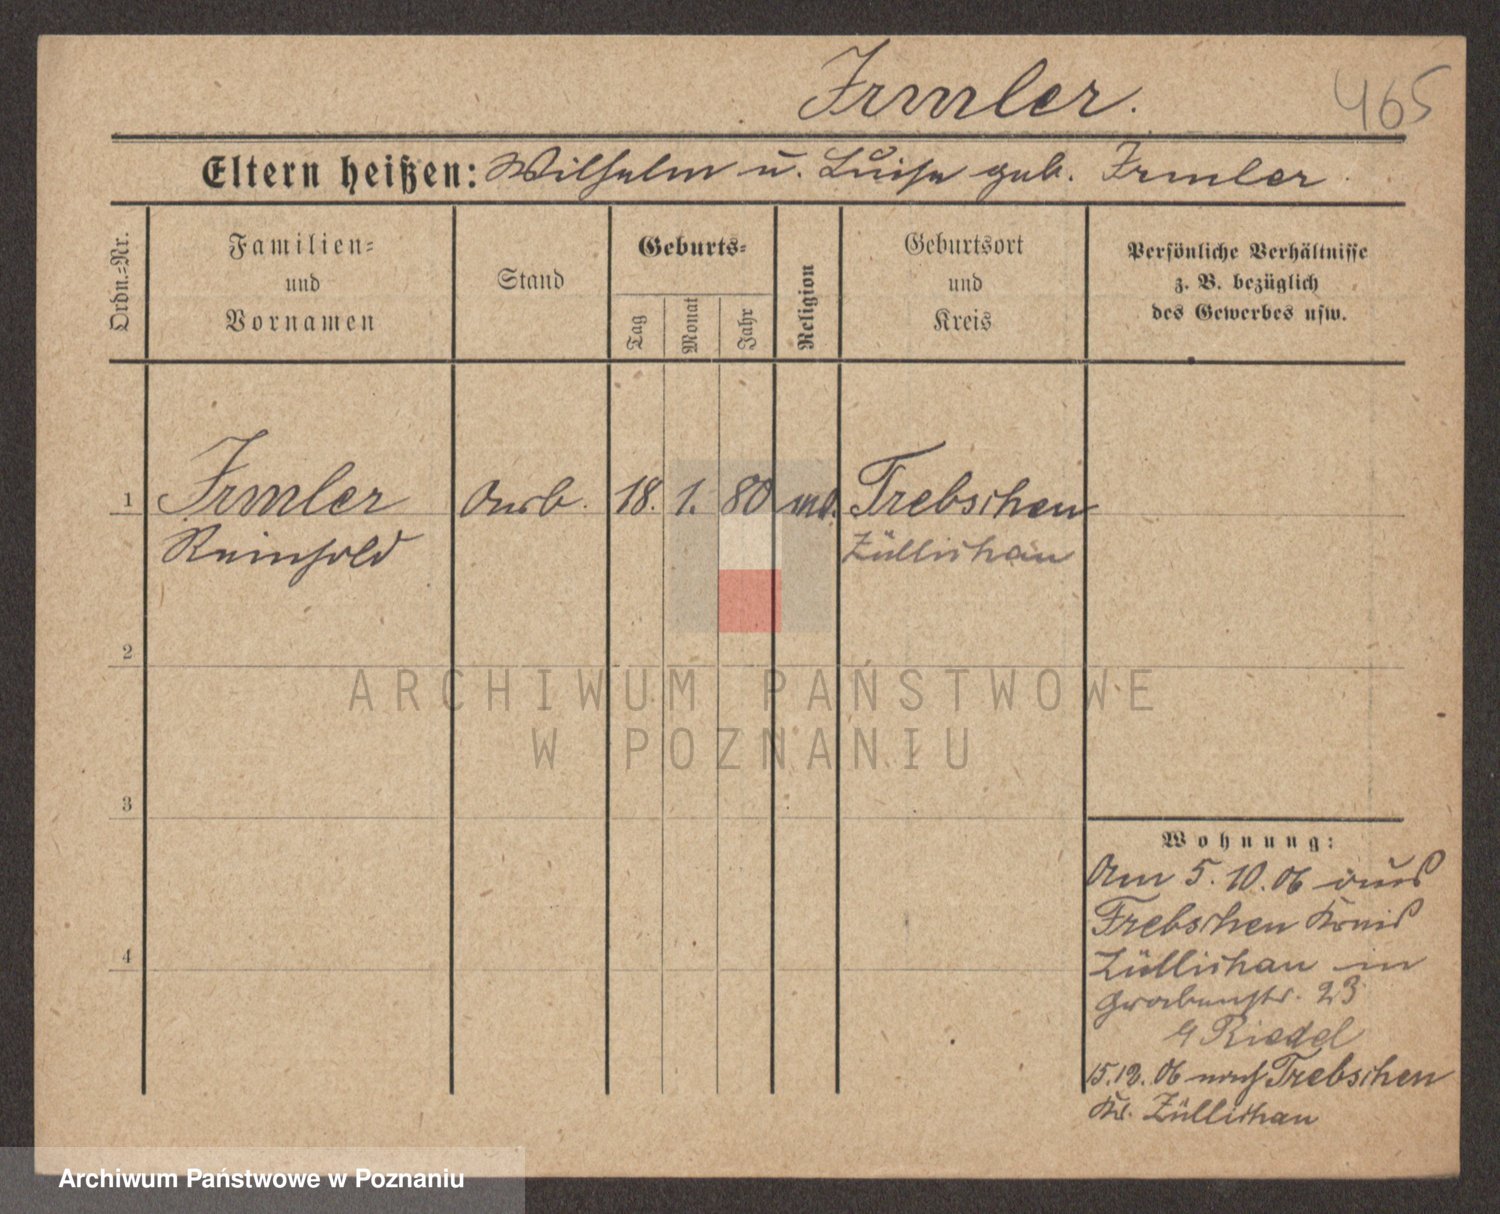 Irmler.
465
Eltern heißen: Wilhelm u. Luise geb. Irmler
Ordn.=Nr.
Familien=
und
Vornamen
Stand
Geburts=
Tag
Monat
Jahr
Religion
Geburtsort
und
Kreis
Persönliche Verhältnisse
z. B. bezüglich
des Gewerbes usw.
1 Irmler Arb. 18. 1. 80 Trebschen
Reinhold Züllichau
2
ARCHIWUM PAŃSTWOWE
W POZNANIU
3
Wohnung:
Am 5. 10. 06 aus
Trebschen Kreis
4
Züllichau in
Grabenstr. 23
Riedel
15.12.06 nach Trebschen
Kr. Züllichau
Archiwum Państwowe w Poznaniu